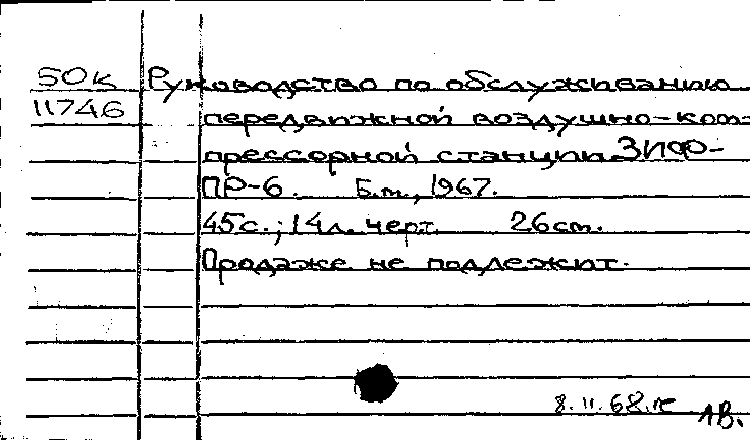 50к Руководство по обслуживанию
11746 передвижной воздушно-ком-
прессорной станции ЗИФ-
ПР-6. Б.м., 1967.
45с.; 14л. черт. 26см.
Продаже не подлежит.
8.II.68.
1В.